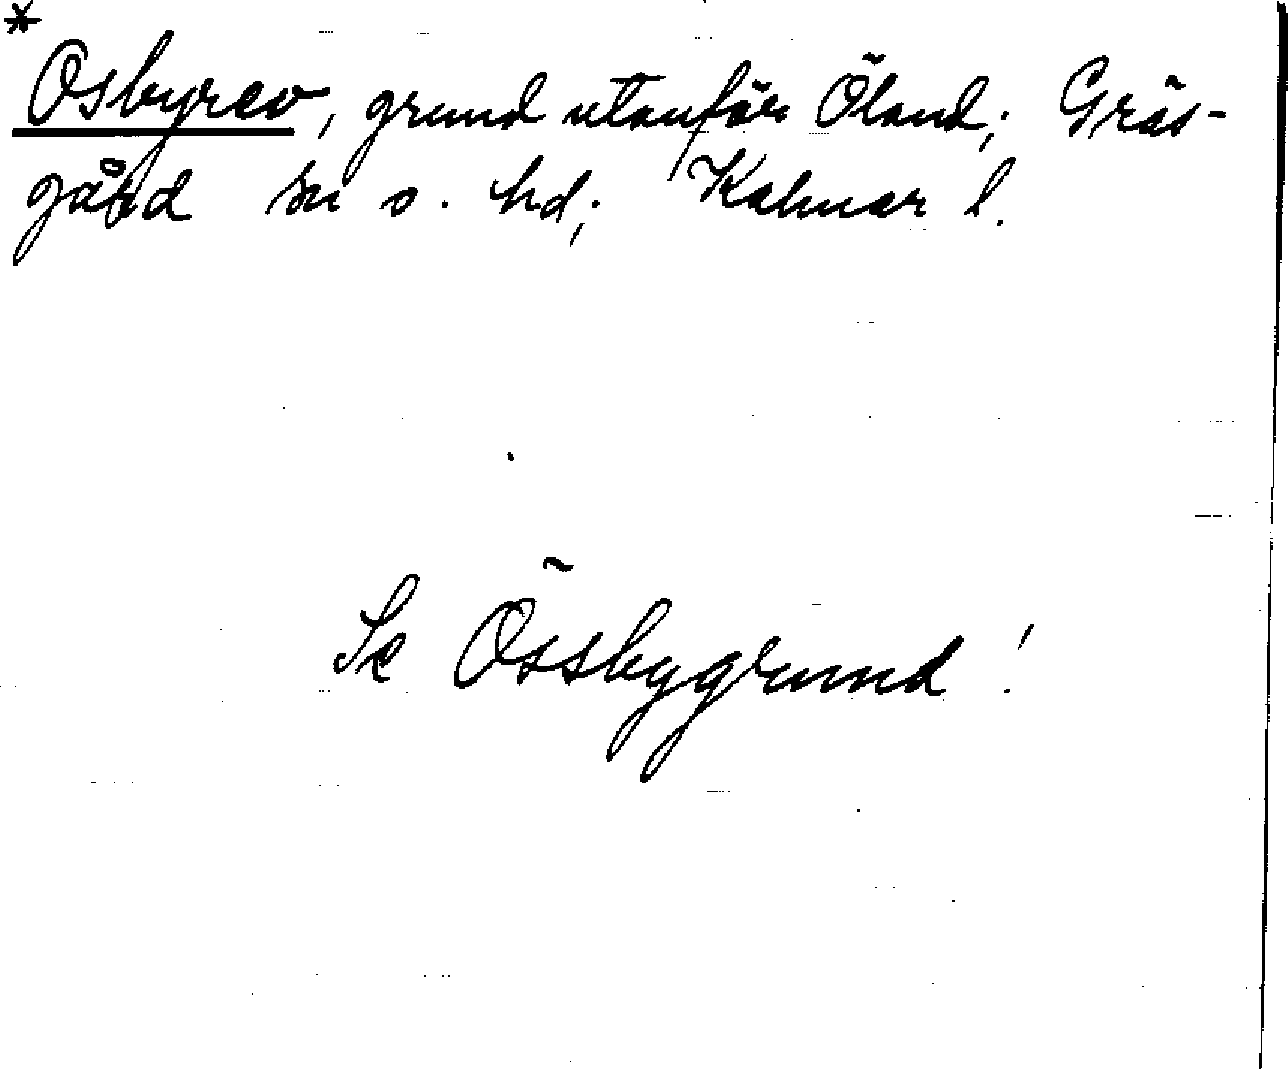 *
Osbyrev, grund utanför Öland; Gräs-
gård sn o. hd; Kalmar l.
Se Össbygrund !